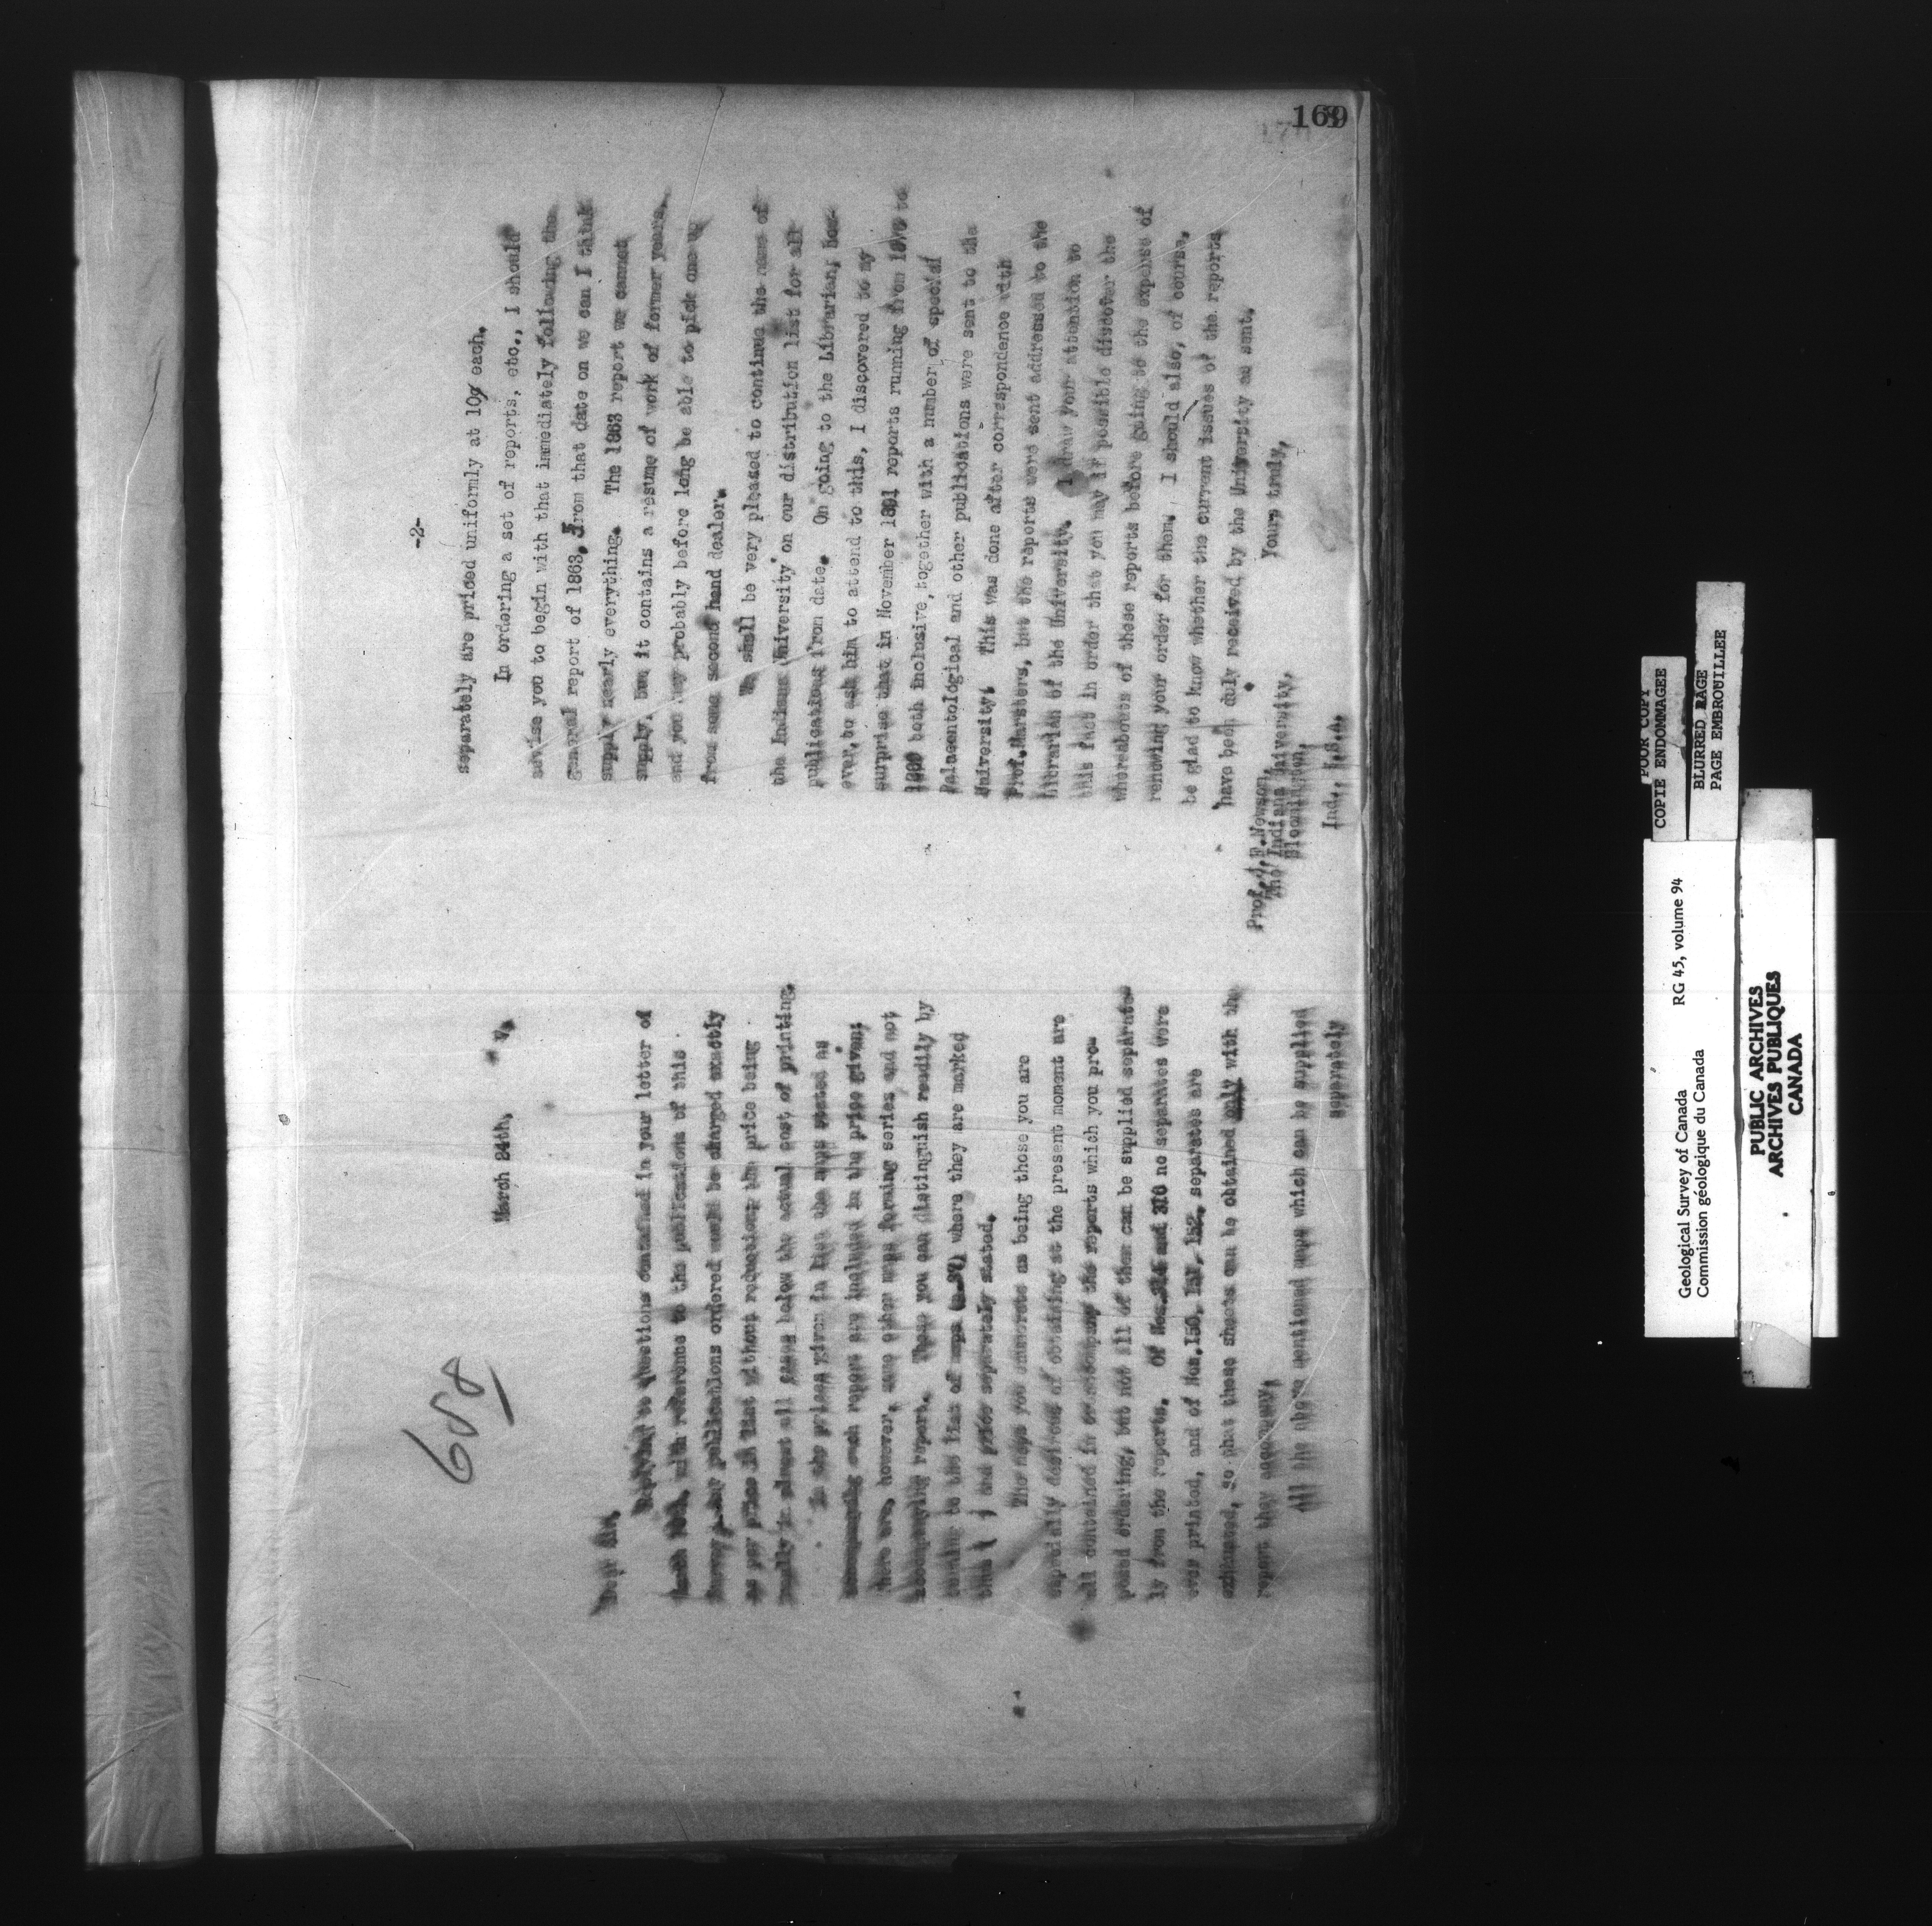 688
March 24th,
Dear Sir,
to questions contained in your letter of
with reference to the publications of this
any publications ordered would be charged exactly
as per price in list without reduction, the price being
in almost all cases below the actual cost of printing.
In the prices given in the maps stated as
accompanying each report are included in the price given;
there are, however, some other maps forming series and not
accompanying report. These you can distinguish readily by
to the list of maps where they are marked
thus ( ) and price separately stated.
The maps you enumerate as being those you are
especially desirous of obtaining at the present moment are
all contained in or accompany the reports which you pro-
posed ordering, but not all of them can be supplied separate-
ly from the reports. Of Nos. and 370 no separates were
ever printed, and of Nos. 150, 151, 152, separates are
exhausted, so that these sheets can be obtained only with the
report they accompany.
All the above mentioned maps which can be supplied
separately
-2-
separately are priced uniformly at 10¢ each.
In ordering a set of reports, etc., I should
advise you to begin with that immediately following the
general report of 1863, from that date on we can I think
supply nearly everything. The 1863 report we cannot
supply, but it contains a resume of work of former years,
and you may probably before long be able to pick one up
from some second hand dealer.
We shall be very pleased to continue the name of
the Indiana University on our distribution list for all
publications from date. On going to the Librarian, how-
ever, to ask him to attend to this, I discovered to my
surprise that in November 1891 reports running from to
both inclusive, together with a number of special
Palaeontological and other publications were sent to the
University. This was done after correspondence with
Prof. Marsters, but the reports were sent addressed to the
Librarian of the University. I draw your attention to
this fact in order that you may if possible discover the
whereabouts of these reports before going to the expense of
renewing your order for them. I should also, of course,
be glad to know whether the current issues of the reports
have been duly received by the University as sent.
Yours truly,
Prof. J. F. Newsom,
The Indiana University,
Bloomington,
Ind., U.S.A.
169
POOR COPY
COPIE ENDOMMAGEE
BLURRED PAGE
PAGE EMBROUILLEE
Geological Survey of Canada RG 45, volume 94
Commission géologique du Canada
PUBLIC ARCHIVES
ARCHIVES PUBLIQUES
CANADA